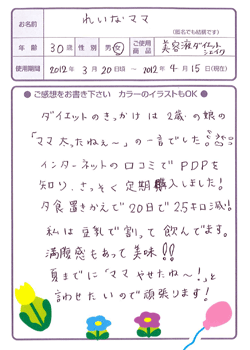 お名前 れいなママ
(匿名でも結構です)
年齢 30歳 性別 男・女 ご使用商品 美容液ダイエットシェイク
使用期間 2012年 3月 20日頃 ～ 2012年 4月 15日(現在)
●ご感想をお書き下さい カラーのイラストもOK●
ダイエットのきっかけは2歳の娘の
「ママ太ったねぇ〜」の一言でした。
インターネットの口コミでPDPを
知り、さっそく定期購入しました!
夕食置きかえで20日で2.5キロ減!
私は豆乳で割って飲んでます。
満腹感もあって美味!!
夏までに「ママやせたね〜!」と
言わせたいので頑張ります!